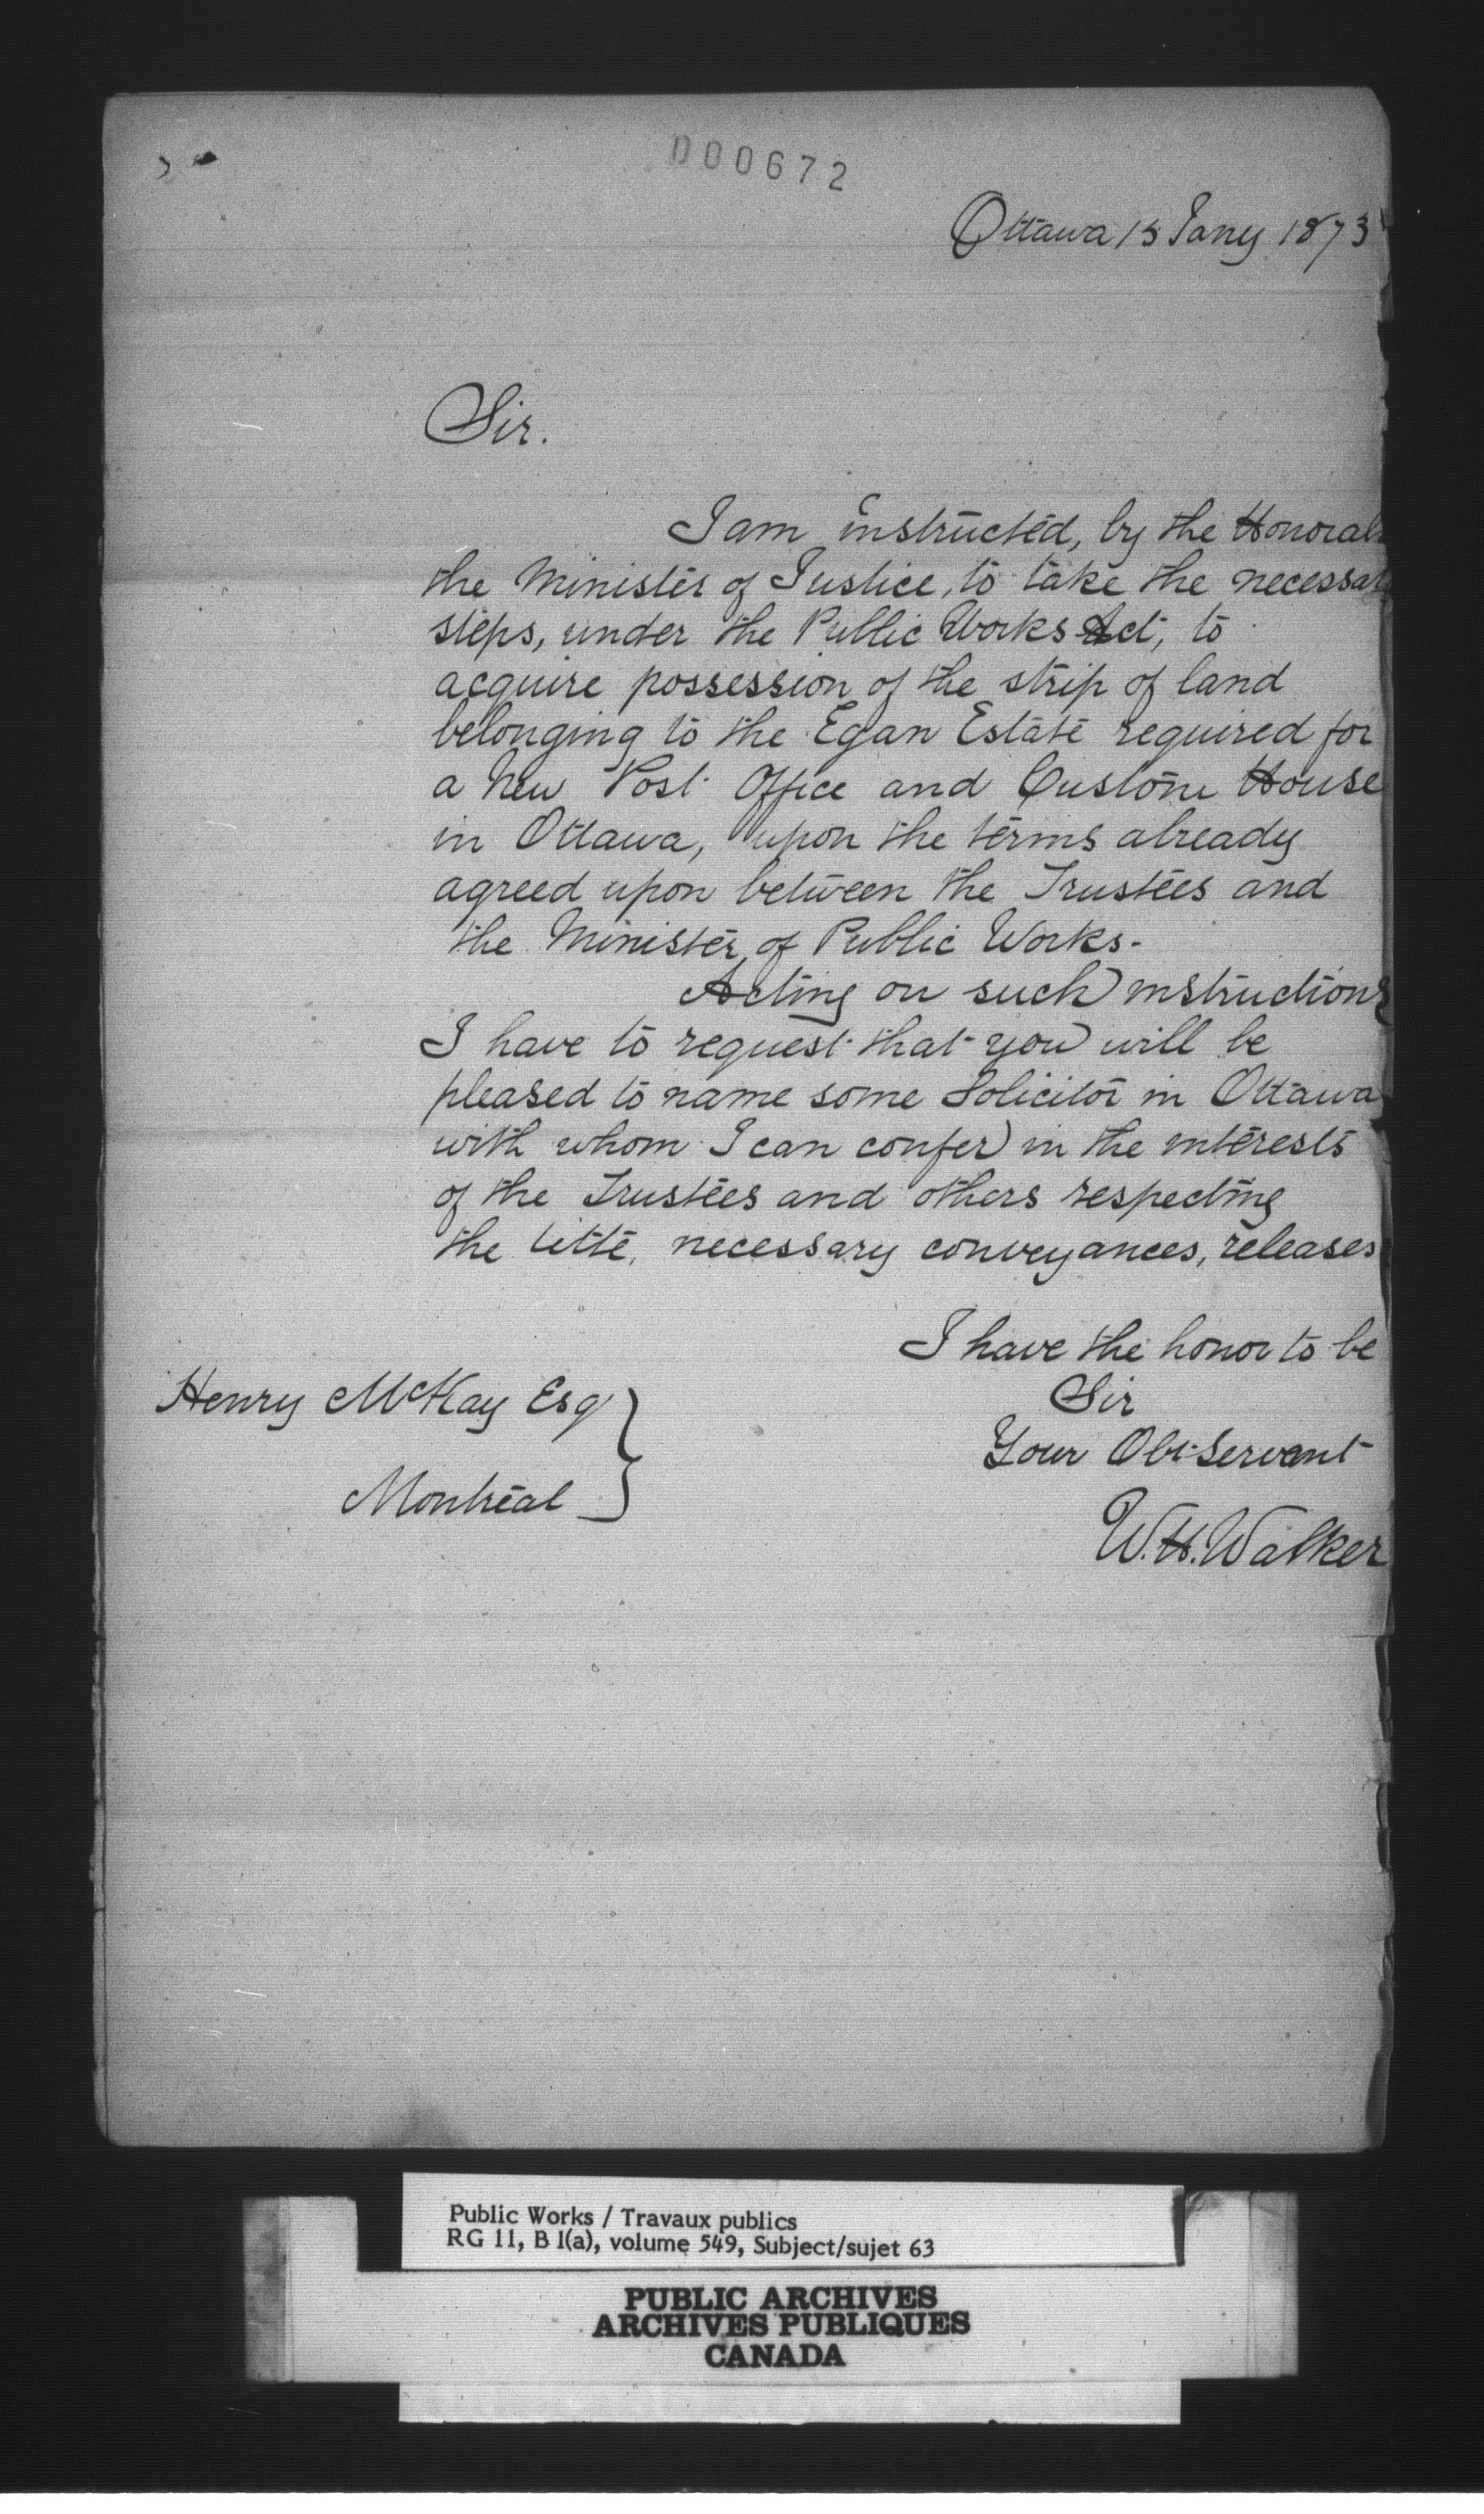 000672
Ottawa 15 Jany 1873
Sir.
I am instructed, by the Honorab
the Minister of Justice, to take the necessar
steps, under the Public Works Act, to
acquire possession of the strip of land
belonging to the Egan Estate required for
a New Post Office and Custom House
in Ottawa, upon the terms already
agreed upon between the Trustees and
the Minister of Public Works-
Acting on such instructions
I have to request that you will be
pleased to name some Solicitor in Ottawa
with whom I can confer in the interests
of the Trustees and others respecting
the title, necessary conveyances, releases
I have the honor to be
Sir
Your Obt Servant
W.H. Walker
Henry McKay Esq
Montreal
Public Works / Travaux publics
RG 11, B 1(a), volume 549, Subject/sujet 63
PUBLIC ARCHIVES
ARCHIVES PUBLIQUES
CANADA